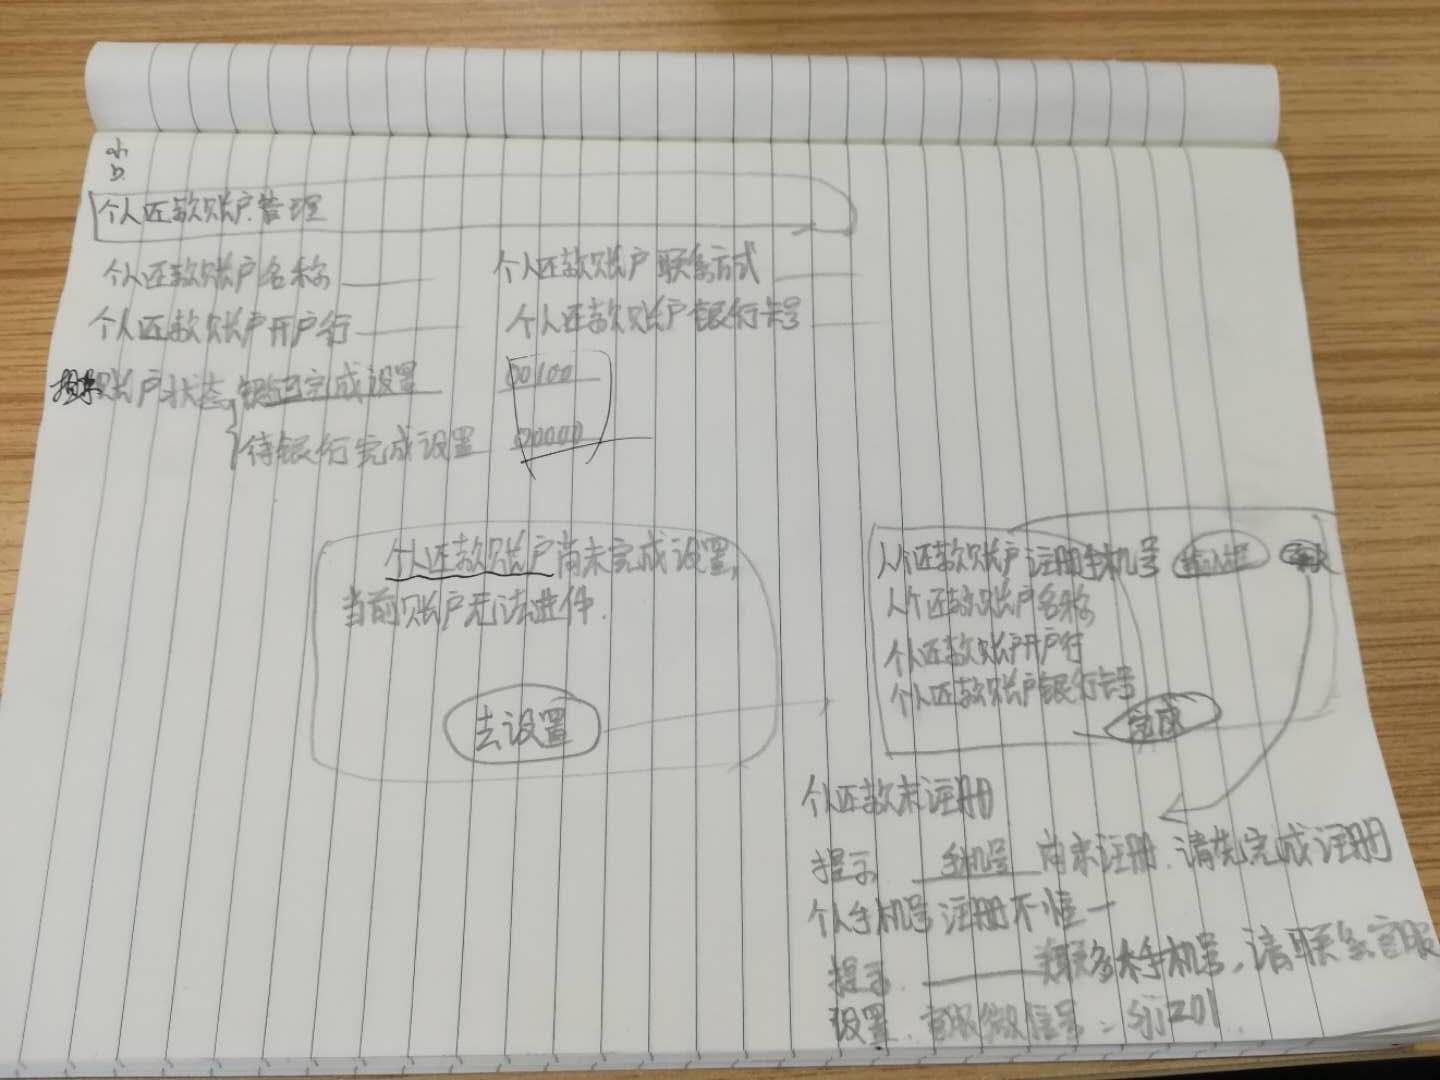 个人还款账户管理
个人还款账户名称 个人还款账户联系方式
个人还款账户开户行 个人还款账户银行卡号
账户状态 已完成设置 00100
待银行完成设置 00000
个人还款账户尚未完成设置,
当前账户无法进件.
去设置
个人还款账户注册手机号 输入框
个人还款账户名称
个人还款账户开户行
个人还款账户银行卡号
完成
个人还款未注册
提示 手机号 尚未注册.请先完成注册
个人手机号注册不唯一
提示. 关联多个手机号,请联系客服
设置.客服微信号: